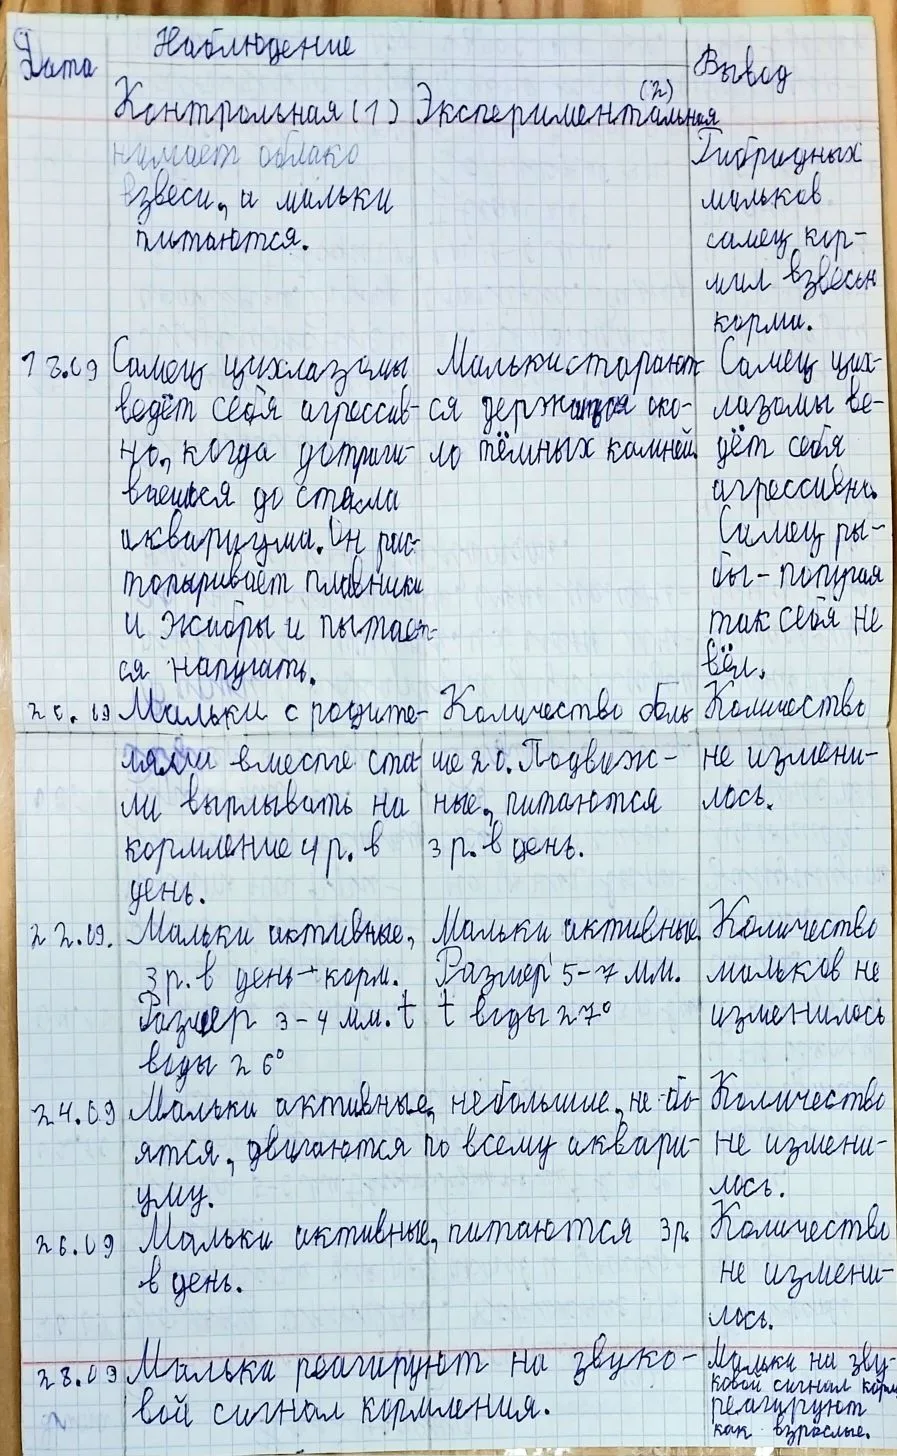 Дата
Наблюдение
Вывод
Контрольная (1)
Экспериментальная (2)
нимает облако
взвеси, а мальки
питаются.
Гибридных
мальков
самец кор-
мил взвесью
корма.
18.09
Самец цихлазомы
ведёт себя агрессив-
но, когда дотраги-
ваешься до стекла
аквариума. Он рас-
топыривает плавники
и жабры и пытает-
ся напугать.
Мальки старают
ся держаться око-
ло тёмных камней.
Самец цих-
лазомы ве-
дёт себя
агрессивно.
Самец ры-
бы-попугая
так себя не
вёл.
20.09
Мальки с родите-
лями вместе ста
ли выплывать на
кормление 4 р. в
день.
Количество боль
ше 20. Подвиж-
ные, питаются
3 р. в день.
Количество
не измени-
лось.
22.09.
Мальки активные,
3 р. в день корм.
Размер 3-4 мм. t
воды 26°
Мальки активные.
Размер 5-7 мм.
t воды 27°
Количество
мальков не
изменилось
24.09
Мальки активные, небольшие, не бо-
ятся, двигаются по всему аквари-
уму.
Количество
не измени-
лось.
26.09
Мальки активные, питаются 3 р.
в день.
Количество
не измени-
лось.
28.09
Малька реагируют на звуко-
вой сигнал кормления.
Мальки на зву-
ковой сигнал корм
реагируют
как взрослые.